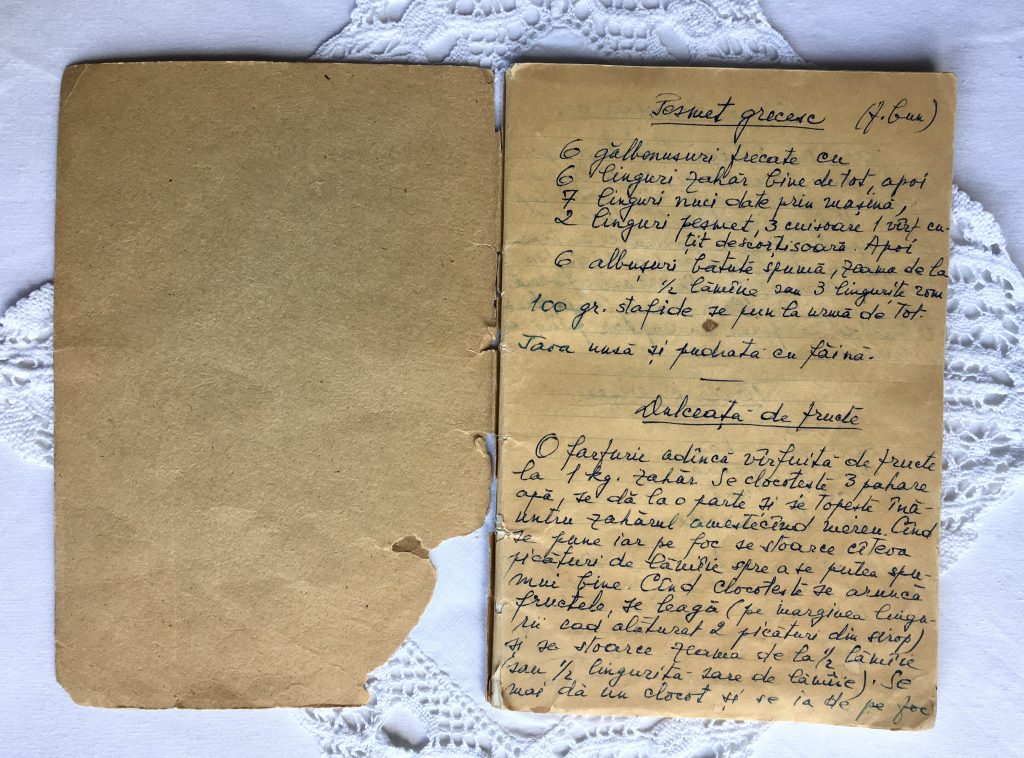 Pesmet grecesc (f. bun)
6 gălbenușuri frecate cu
6 linguri zahăr bine de tot, apoi
7 linguri nuci date prin mașină,
2 linguri pesmet, 3 cuisoare 1 vîrf cu-
țit descorțisoară. Apoi
6 albușuri bătute spumă, zeama de la
1/2 lămîie sau 3 lingurite rom
100 gr. stafide se pun la urmă de tot.
Tava unsă și pudrată cu făină.
Dulceață de fructe
O farfurie adîncă vîrfuită de fructe
la 1 kg. zahăr. Se clocoteste 3 pahare
apă, se dă la o parte și se topeste înă-
untru zahărul amestecînd mereu. Cînd
se pune iar pe foc se stoarce cîteva
picături de lămîie spre a se putea spu-
mui bine. Cînd clocoteste se aruncă
fructele, se leagă (pe marginea lingu-
rii cad alăturat 2 picături din sirop)
și se stoarce zeama de la 1/2 lămîie
(sau 1/2 lingurita sare de lămîie). Se
mai dă un clocot și se ia de pe foc